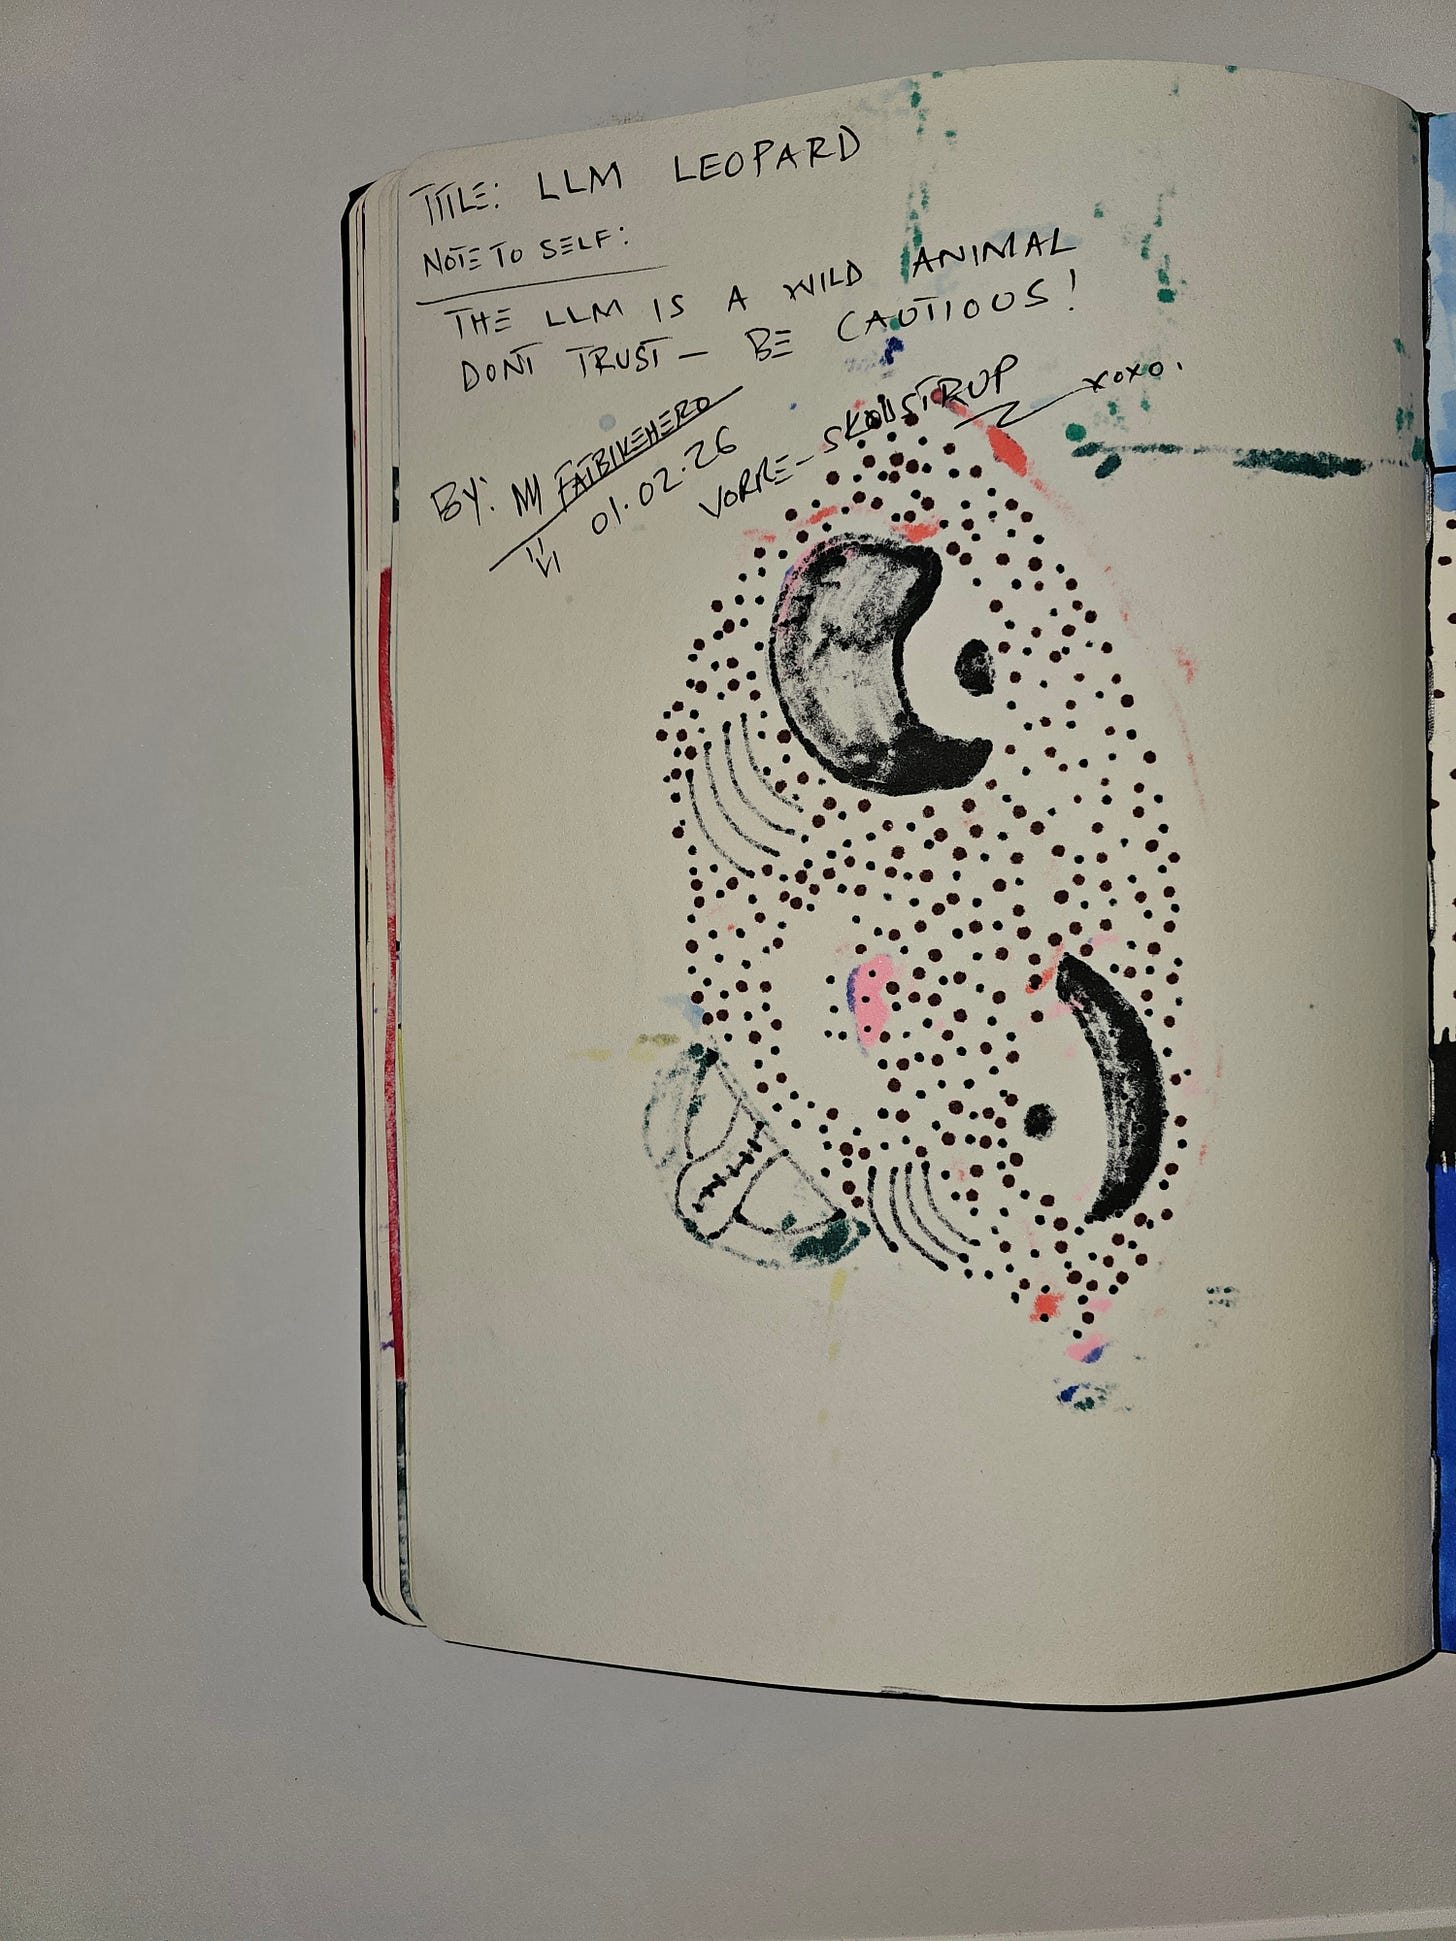 TITLE: LLM LEOPARD
NOTE TO SELF:
THE LLM IS A WILD ANIMAL
DONT TRUST — BE CAUTIOUS!
BY: FATBIKEHERO
01.02.26
VORRE-SKOVSTRUP xoxo.